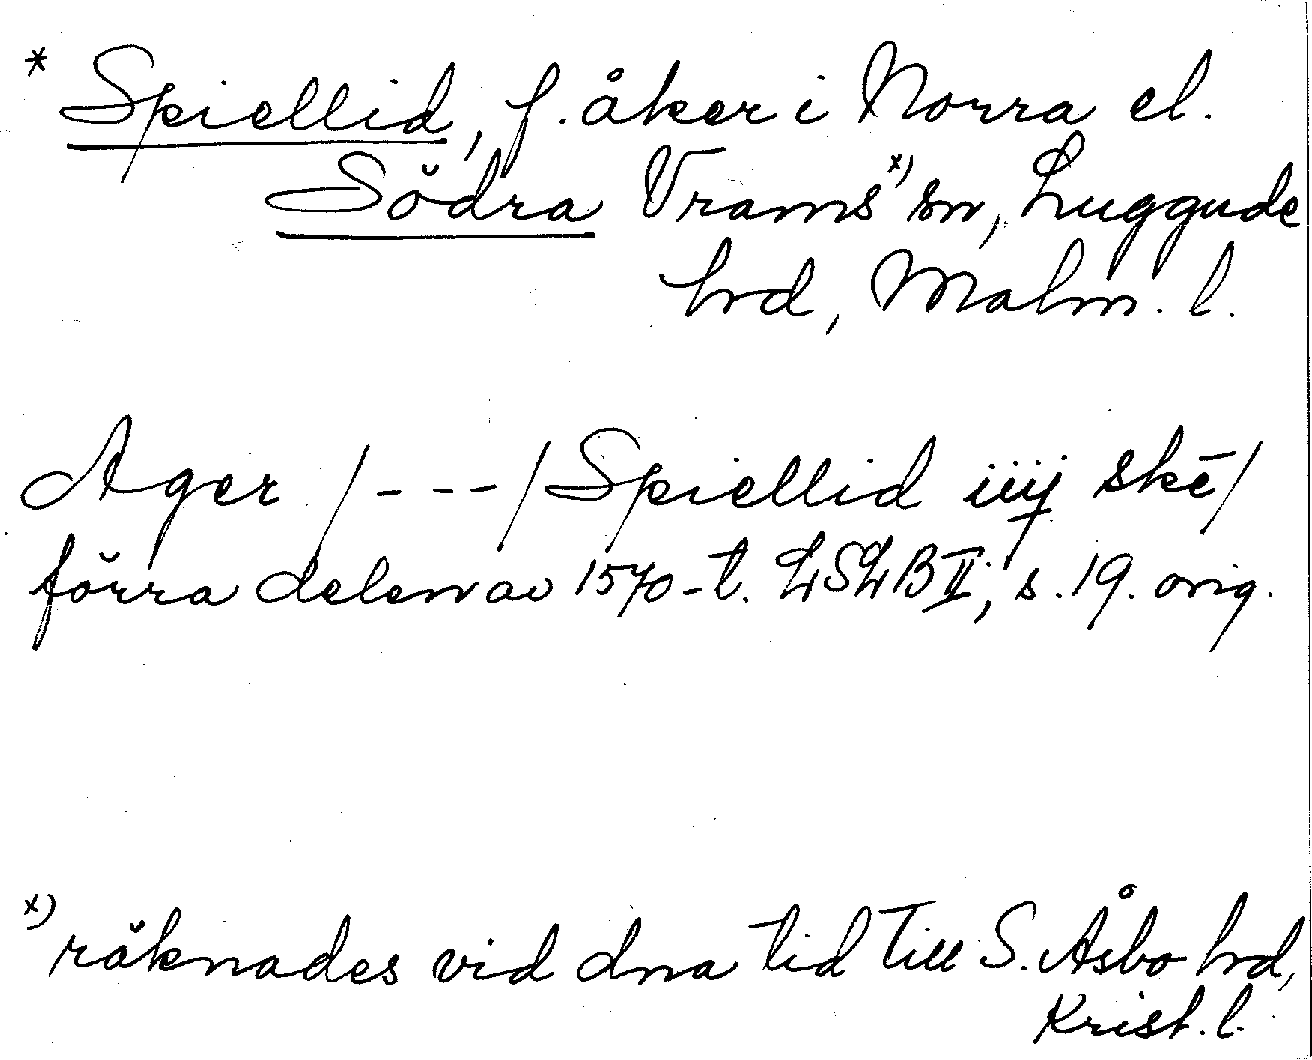 * Spiellid, f. åker i Norra el.
Södra Vrams x) sn, Luggude
hrd, Malm. l.
Ager /---/ Spiellid iiij skē/
förra delen av 1570-t. LSLB II, s. 19. orig.
x) räknades vid dna tid till S. Åsbo hrd,
Krist. l.